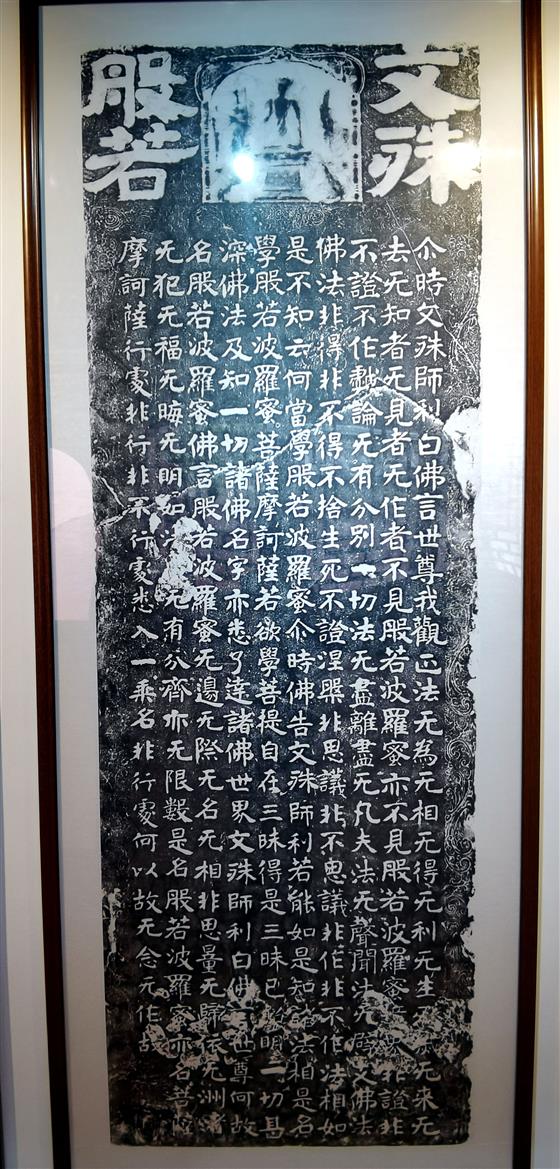 文殊
般若
尒時文殊師利白佛言世尊我觀正法无為无相无得无利无生无来无
去无知者无見者无作者不見般若波羅蜜亦不見般若波羅蜜非證非
不證不作戲論无有分別一切法无盡離盡无凡夫法无聲聞法无辟支佛法
佛法非得非不得不捨生死不證涅槃非思議非不思議非作非不作法相如
是不知云何當學般若波羅蜜尒時佛告文殊師利若能如是知諸法相是名
學般若波羅蜜菩薩摩訶薩若欲學菩提自在三昧得是三昧已照明一切甚
深佛法及知一切諸佛名字亦悉了達諸佛世界文殊師利白佛言世尊何故
名般若波羅蜜佛言般若波羅蜜无邊无際无名无相非思量无歸依无洲渚
无犯无福无晦无明如法无有分齊亦无限數是名般若波羅蜜亦名菩薩
摩訶薩行處非行非不行處悉入一乘名非行處何以故无念无作故